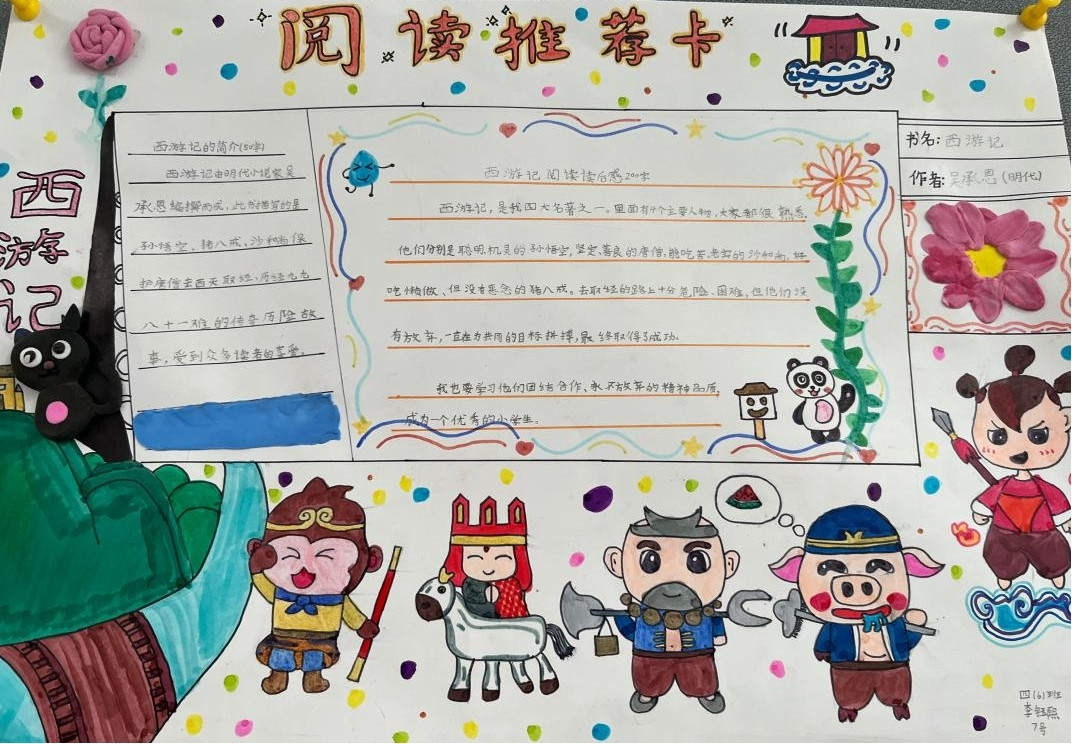 阅读推荐卡
西游记
西游记的简介(50字)
西游记由明代小说家吴
承恩编撰而成,此书描写的是
孙悟空、猪八戒、沙和尚保
护唐僧去西天取经、历经九九
八十一难的传奇历险故
事,受到众多读者的喜爱。
西游记阅读读后感200字
西游记,是我四大名著之一。里面有4个主要人物,大家都很熟悉,
他们分别是聪明机灵的孙悟空,坚定、善良的唐僧,能吃苦老实的沙和尚,好
吃懒做、但没有恶念的猪八戒。去取经的路上十分危险、困难,但他们没
有放弃,一直在为共同的目标拼搏,最终取得了成功。
我也要学习他们团结合作、永不放弃的精神品质,
成为一个优秀的小学生。
书名:西游记
作者:吴承恩(明代)
四(6)班
李钰熙
7号